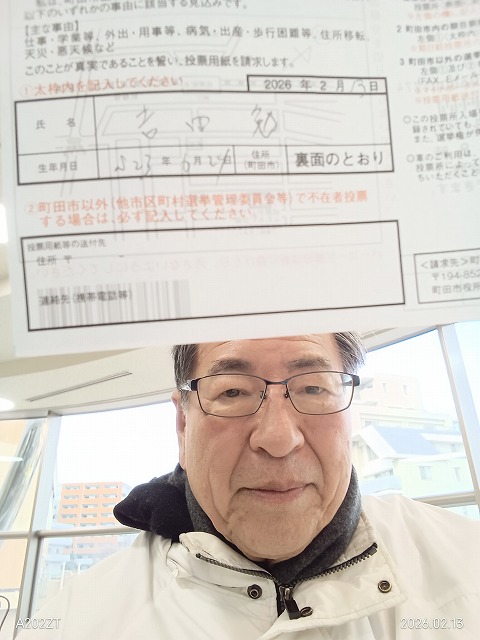 以下のいずれかの事由に該当する見込みです。
【主な事由】
仕事・学業等、外出・用事等、病気・出産・歩行困難等、住所移転、
天災・悪天候など
このことが真実であることを誓い、投票用紙を請求します。
①太枠内を記入してください
2026 年 2 月 13 日
氏 名 吉田 勉
生年月日 S23 年 6 月 24 日 住所（町田市） 裏面のとおり
②町田市以外（他市区町村選挙管理委員会等）で不在者投票
する場合は、必ず記入してください。
投票用紙等の送付先
住所 〒 -
連絡先（携帯電話等）
2 町田市内の期
左側
3 町田市以外の
左側
(FAX、Eメール
○この投票所入場
録されていても、
また、選挙権が
○車のご利用は、
投票所に
ちいただくこと
＜請求先＞町
〒194-852
町田市役所
A202ZT
2026.02.13